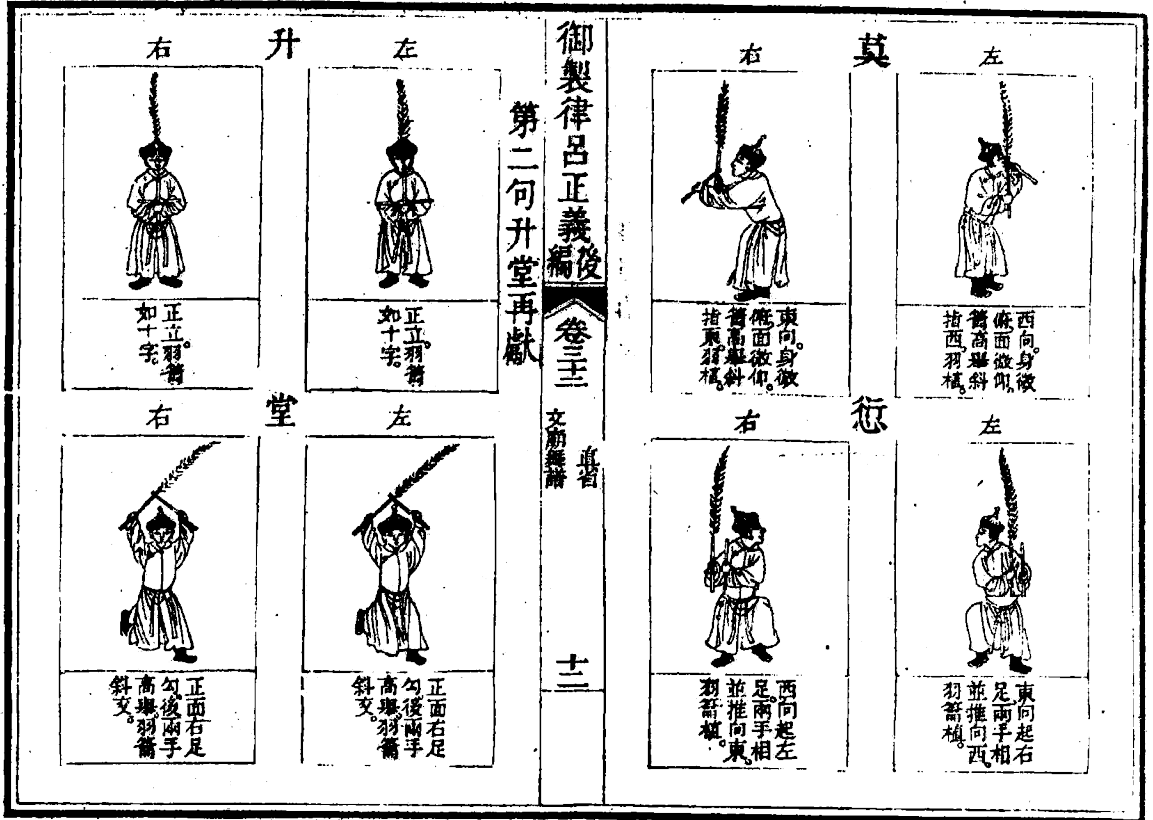 莫
左
西向。身微
俯。面微仰。
籥高舉斜
指西。羽植。
右
東向。身微
俯。面微仰。
籥高舉斜
指東。羽植。
衍
左
東向起右
足。兩手相
並推向西。
羽籥植。
右
西向起左
足。兩手相
並推向東。
羽籥植。
御製律呂正義後編
卷三十二
直省
文廟舞譜
十二
第二句升堂再獻
升
左
正立。羽籥
如十字。
右
正立。羽籥
如十字。
堂
左
正面右足
勾後。兩手
高舉。羽籥
斜交。
右
正面右足
勾後。兩手
高舉。羽籥
斜交。